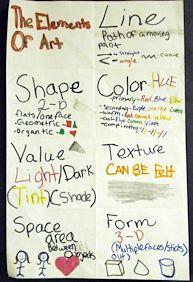 The Elements
Of Art
Line
Path of a moving
point
straight
curve
angle
Shape
2-D
flat/one face
Geometric
organtic
Color HUE
primary-Red Blue Yellow
Secondary-Purple orange Green
warm-Red orange yellow
cool-Blue Green Violet
Value
Light/Dark
(Tint)(Shade)
Texture
CAN BE felt
Space
area
between
objects
Form
3-D
(Multiple faces/sticks
out)